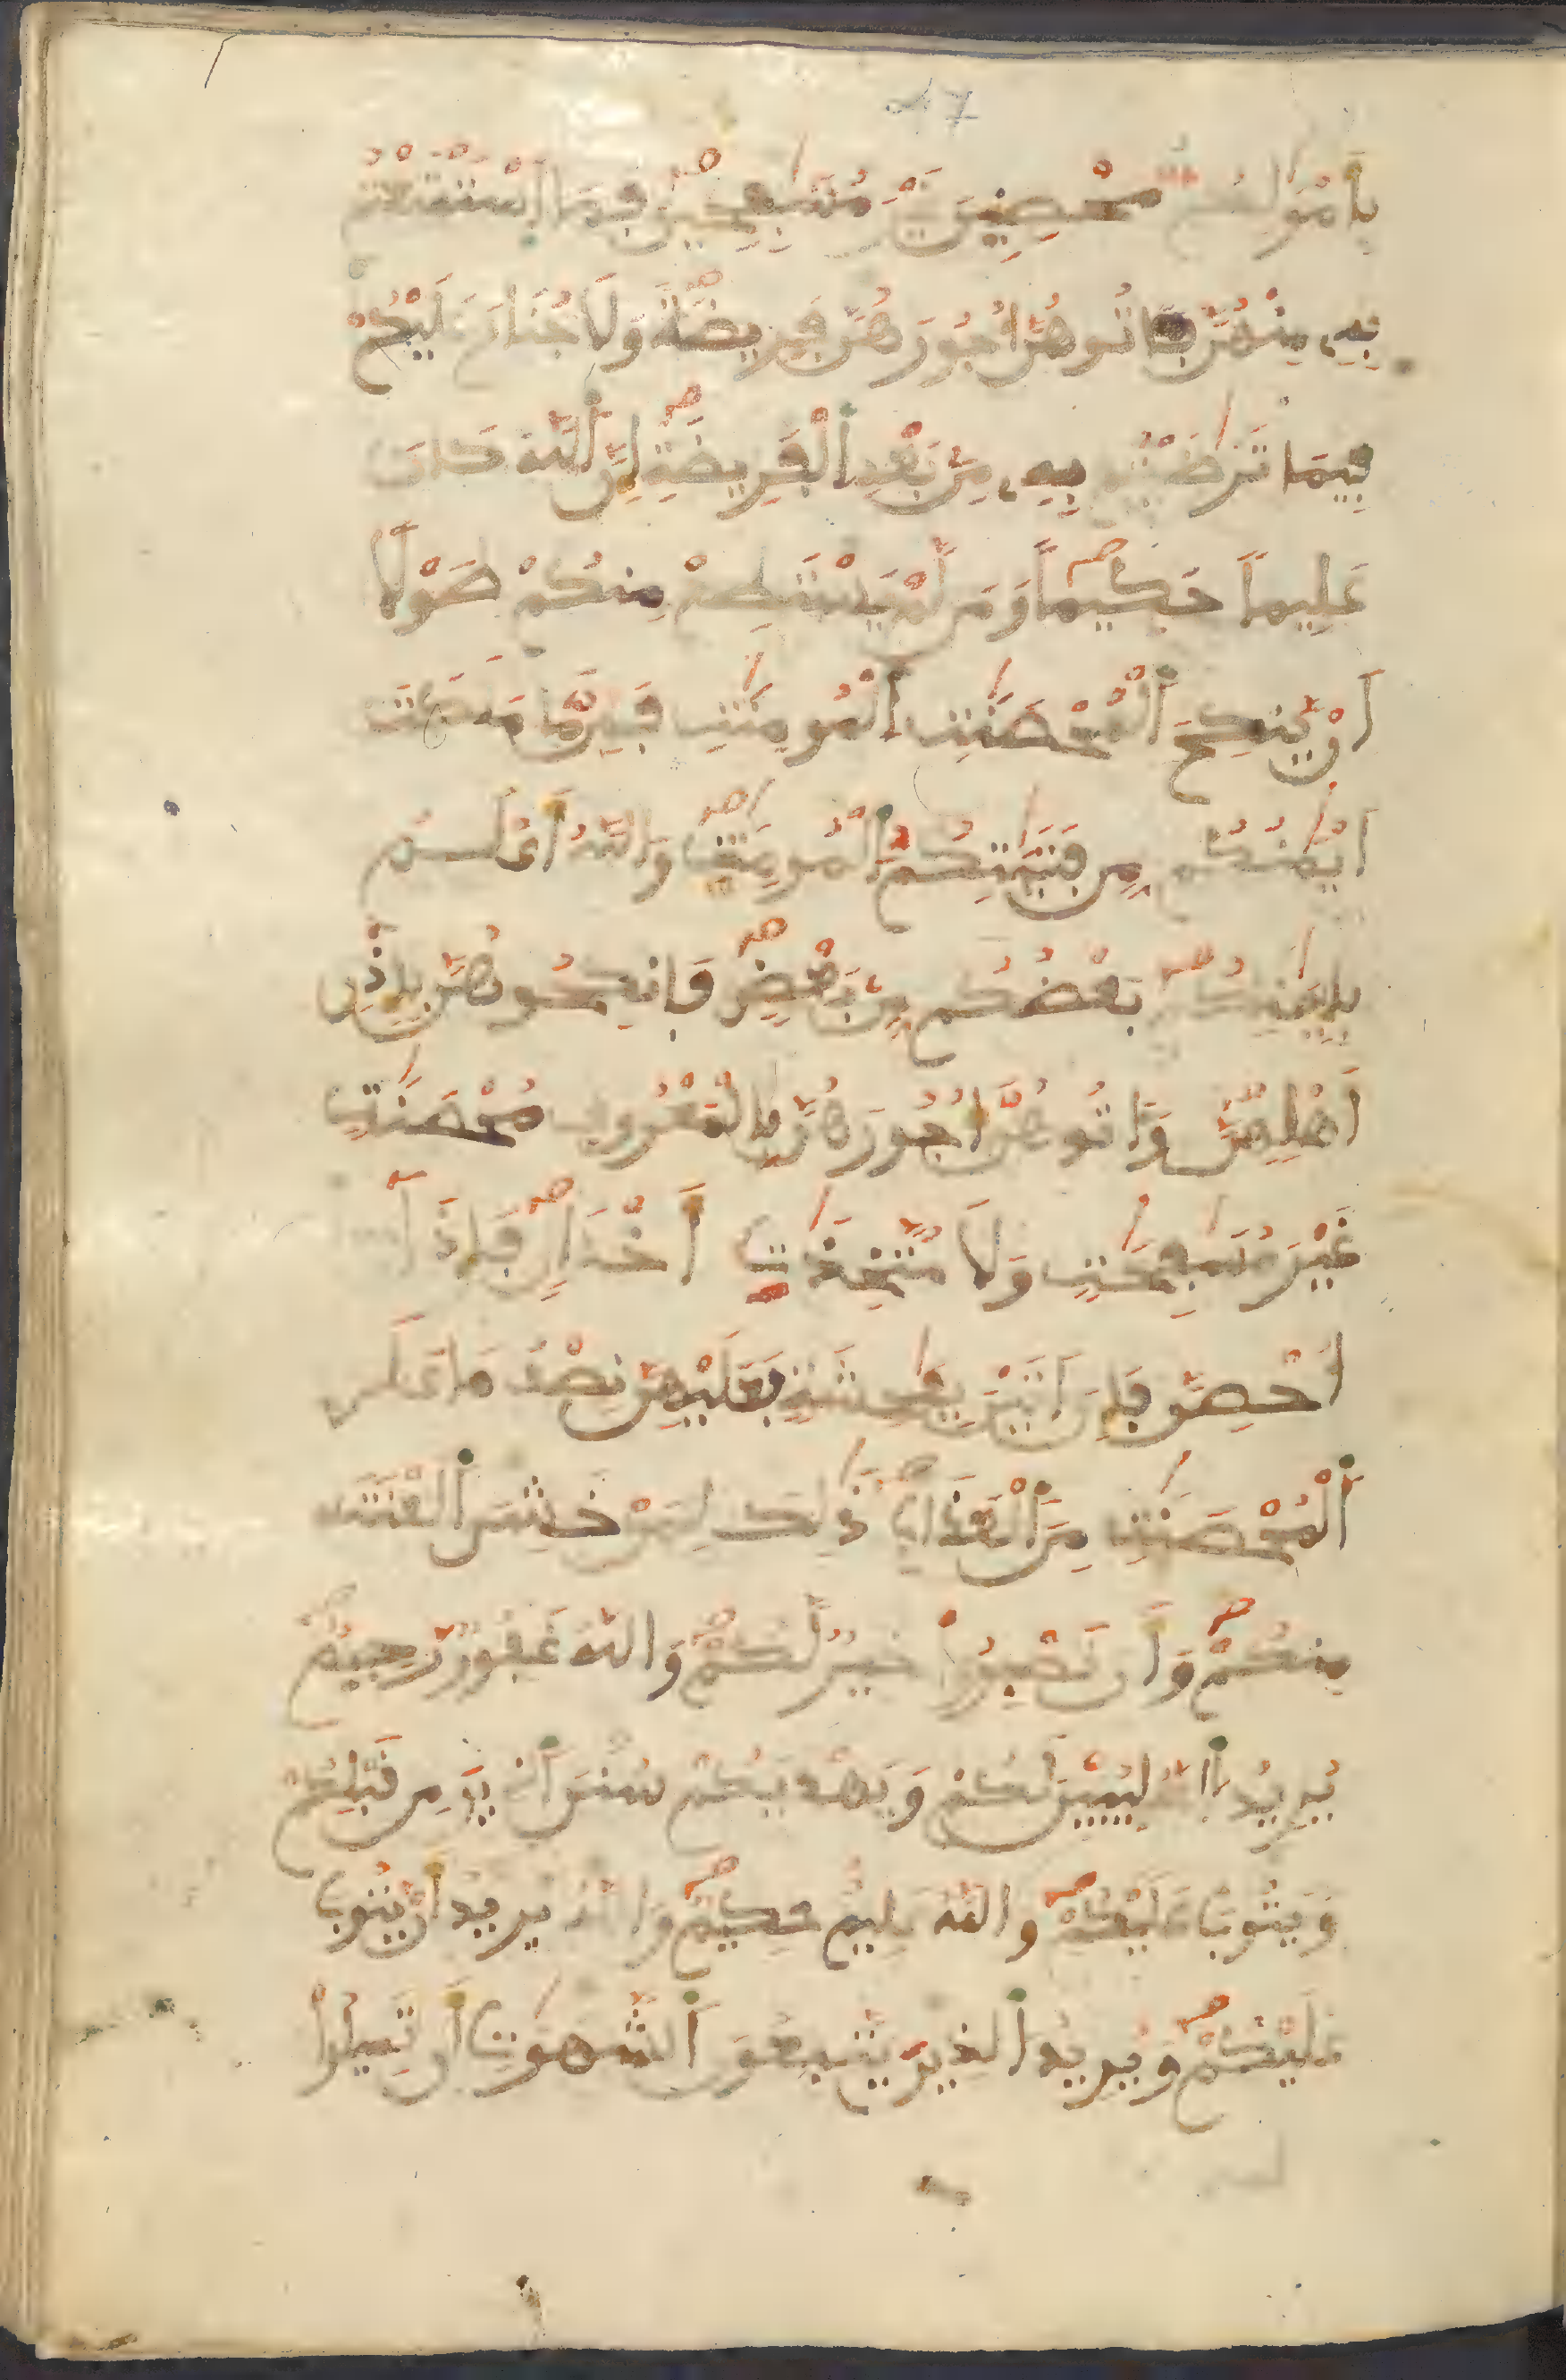 47
بِأَمْوَٰلِكُم مُّحْصِنِينَ غَيْرَ مُسَٰفِحِينَ فَمَا اَسْتَمْتَعْتُم
بِهِۦ مِنْهُنَّ فَـَٔاتُوهُنَّ أُجُورَهُنَّ فَرِيضَةً وَلَا جُنَاحَ عَلَيْكُمْ
فِيمَا تَرَٰضَيْتُم بِهِۦ مِنۢ بَعْدِ اِ۬لْفَرِيضَةِ إِنَّ اَ۬للَّهَ كَانَ
عَلِيماً حَكِيماً وَمَن لَّمْ يَسْتَطِعْ مِنكُمْ طَوْلًا
اَنْ يَّنكِحَ اَ۬لْمُحْصَنَٰتِ اِ۬لْمُومِنَٰتِ فَمِن مَّا مَلَكَتَ
اَيْمَٰنُكُم مِّن فَتَيَٰتِكُمُ اُ۬لْمُومِنَٰتِ وَاللَّهُ أَعْلَمُ
بِإِيمَٰنِكُم بَعْضُكُم مِّنۢ بَعْضٍ فَانكِحُوهُنَّ بِإِذْنِ
أَهْلِهِنَّ وَءَاتُوهُنَّ أُجُورَهُنَّ بِالْمَعْرُوفِ مُحْصَنَٰتٍ
غَيْرَ مُسَٰفِحَٰتٍ وَلَا مُتَّخِذَٰتِ أَخْدَانٍ فَإِذَا
أُحْصِنَّ فَإِنَ اَتَيْنَ بِفَٰحِشَةٍ فَعَلَيْهِنَّ نِصْفُ مَا عَلَى
اَ۬لْمُحْصَنَٰتِ مِنَ اَ۬لْعَذَابِ ذَٰلِكَ لِمَنْ خَشِيَ اَ۬لْعَنَتَ
مِنكُمْ وَأَن تَصْبِرُواْ خَيْرٌ لَّكُمْ وَاللَّهُ غَفُورٌ رَّحِيمٌ
يُرِيدُ اُ۬للَّهُ لِيُبَيِّنَ لَكُمْ وَيَهْدِيَكُمْ سُنَنَ اَ۬لذِينَ مِن قَبْلِكُمْ
وَيَتُوبَ عَلَيْكُمْ وَاللَّهُ عَلِيمٌ حَكِيمٌ وَاللَّهُ يُرِيدُ أَنْ يَّتُوبَ
عَلَيْكُمْ وَيُرِيدُ اُ۬لذِينَ يَتَّبِعُونَ اَ۬لشَّهَوَٰتِ أَن تَمِيلُواْ